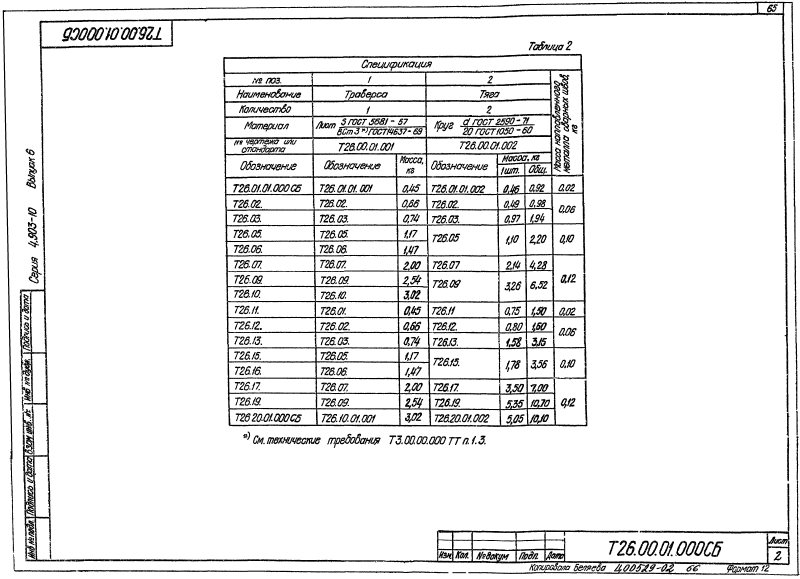 65
Т26.00.01.000СБ
Таблица 2
Спецификация
№ поз. 1 2
Наименование Траверса Тяга
Количество 1 2
Материал Лист S ГОСТ 5681-57 / ВСт3 *) ГОСТ 14637-69 Круг d ГОСТ 2590-71 / 20 ГОСТ 1050-60
№ чертежа или стандарта Т26.00.01.001 Т26.00.01.002
Обозначение Обозначение Масса, кг Обозначение Масса, кг 1 шт. Общ. Масса наплавленного металла сварных швов, кг
Т26.01.01.000СБ Т26.01.01.001 0,45 Т26.01.01.002 0,46 0,92 0,02
Т26.02. Т26.02. 0,66 Т26.02. 0,49 0,98 0,06
Т26.03. Т26.03. 0,74 Т26.03. 0,97 1,94
Т26.05. Т26.05. 1,17 Т26.05 1,10 2,20 0,10
Т26.06. Т26.06. 1,47
Т26.07. Т26.07. 2,00 Т26.07 2,14 4,28 0,12
Т26.09. Т26.09. 2,54 Т26.09 3,26 6,52
Т26.10. Т26.10. 3,02
Т26.11. Т26.01. 0,45 Т26.11 0,75 1,50 0,02
Т26.12. Т26.02. 0,66 Т26.12. 0,80 1,60 0,06
Т26.13. Т26.03. 0,74 Т26.13. 1,58 3,15
Т26.15. Т26.05. 1,17 Т26.15. 1,78 3,56 0,10
Т26.16. Т26.06. 1,47
Т26.17. Т26.07. 2,00 Т26.17. 3,50 7,00 0,12
Т26.19. Т26.09. 2,54 Т26.19. 5,35 10,70
Т26.20.01.000СБ Т26.10.01.001 3,02 Т26.20.01.002 5,05 10,10
*) См. технические требования Т3.00.00.000 ТТ п.1.3.
Серия 4.903-10 Выпуск 6
Инв.№подл. Подпись и дата Взам.инв.№ Инв.№дубл. Подпись и дата
Изм. Кол. №докум Подп. Дата
Т26.00.01.000СБ
Лист
2
Копировала Беляева Ц00529-02 66 Формат 12